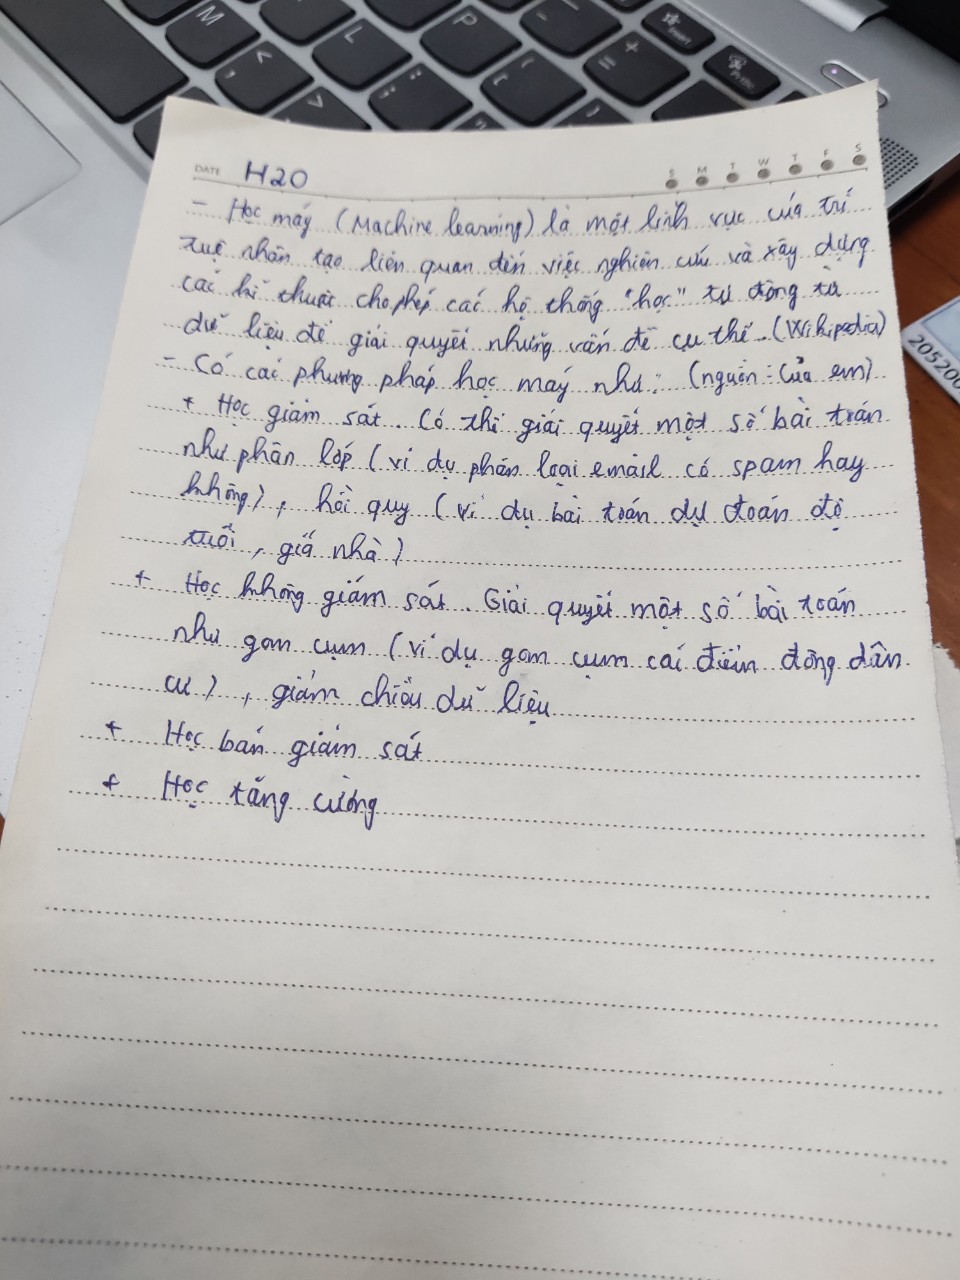 M
L
P
DATE H20
S M T W T F S
- Học máy (Machine learning) là một lĩnh vực của trí
tuệ nhân tạo liên quan đến việc nghiên cứu và xây dựng
các kĩ thuật cho phép các hệ thống "học" tự động từ
dữ liệu để giải quyết những vấn đề cụ thể. (Wikipedia)
- Có các phương pháp học máy như: (nguồn: Của em)
+ Học giám sát. Có thể giải quyết một số bài toán
như phân lớp (ví dụ phân loại email có spam hay
không), hồi quy (ví dụ bài toán dự đoán độ
tuổi, giá nhà)
+ Học không giám sát. Giải quyết một số bài toán
như gom cụm (ví dụ gom cụm các điểm đông dân
cư), giảm chiều dữ liệu
+ Học bán giám sát
+ Học tăng cường